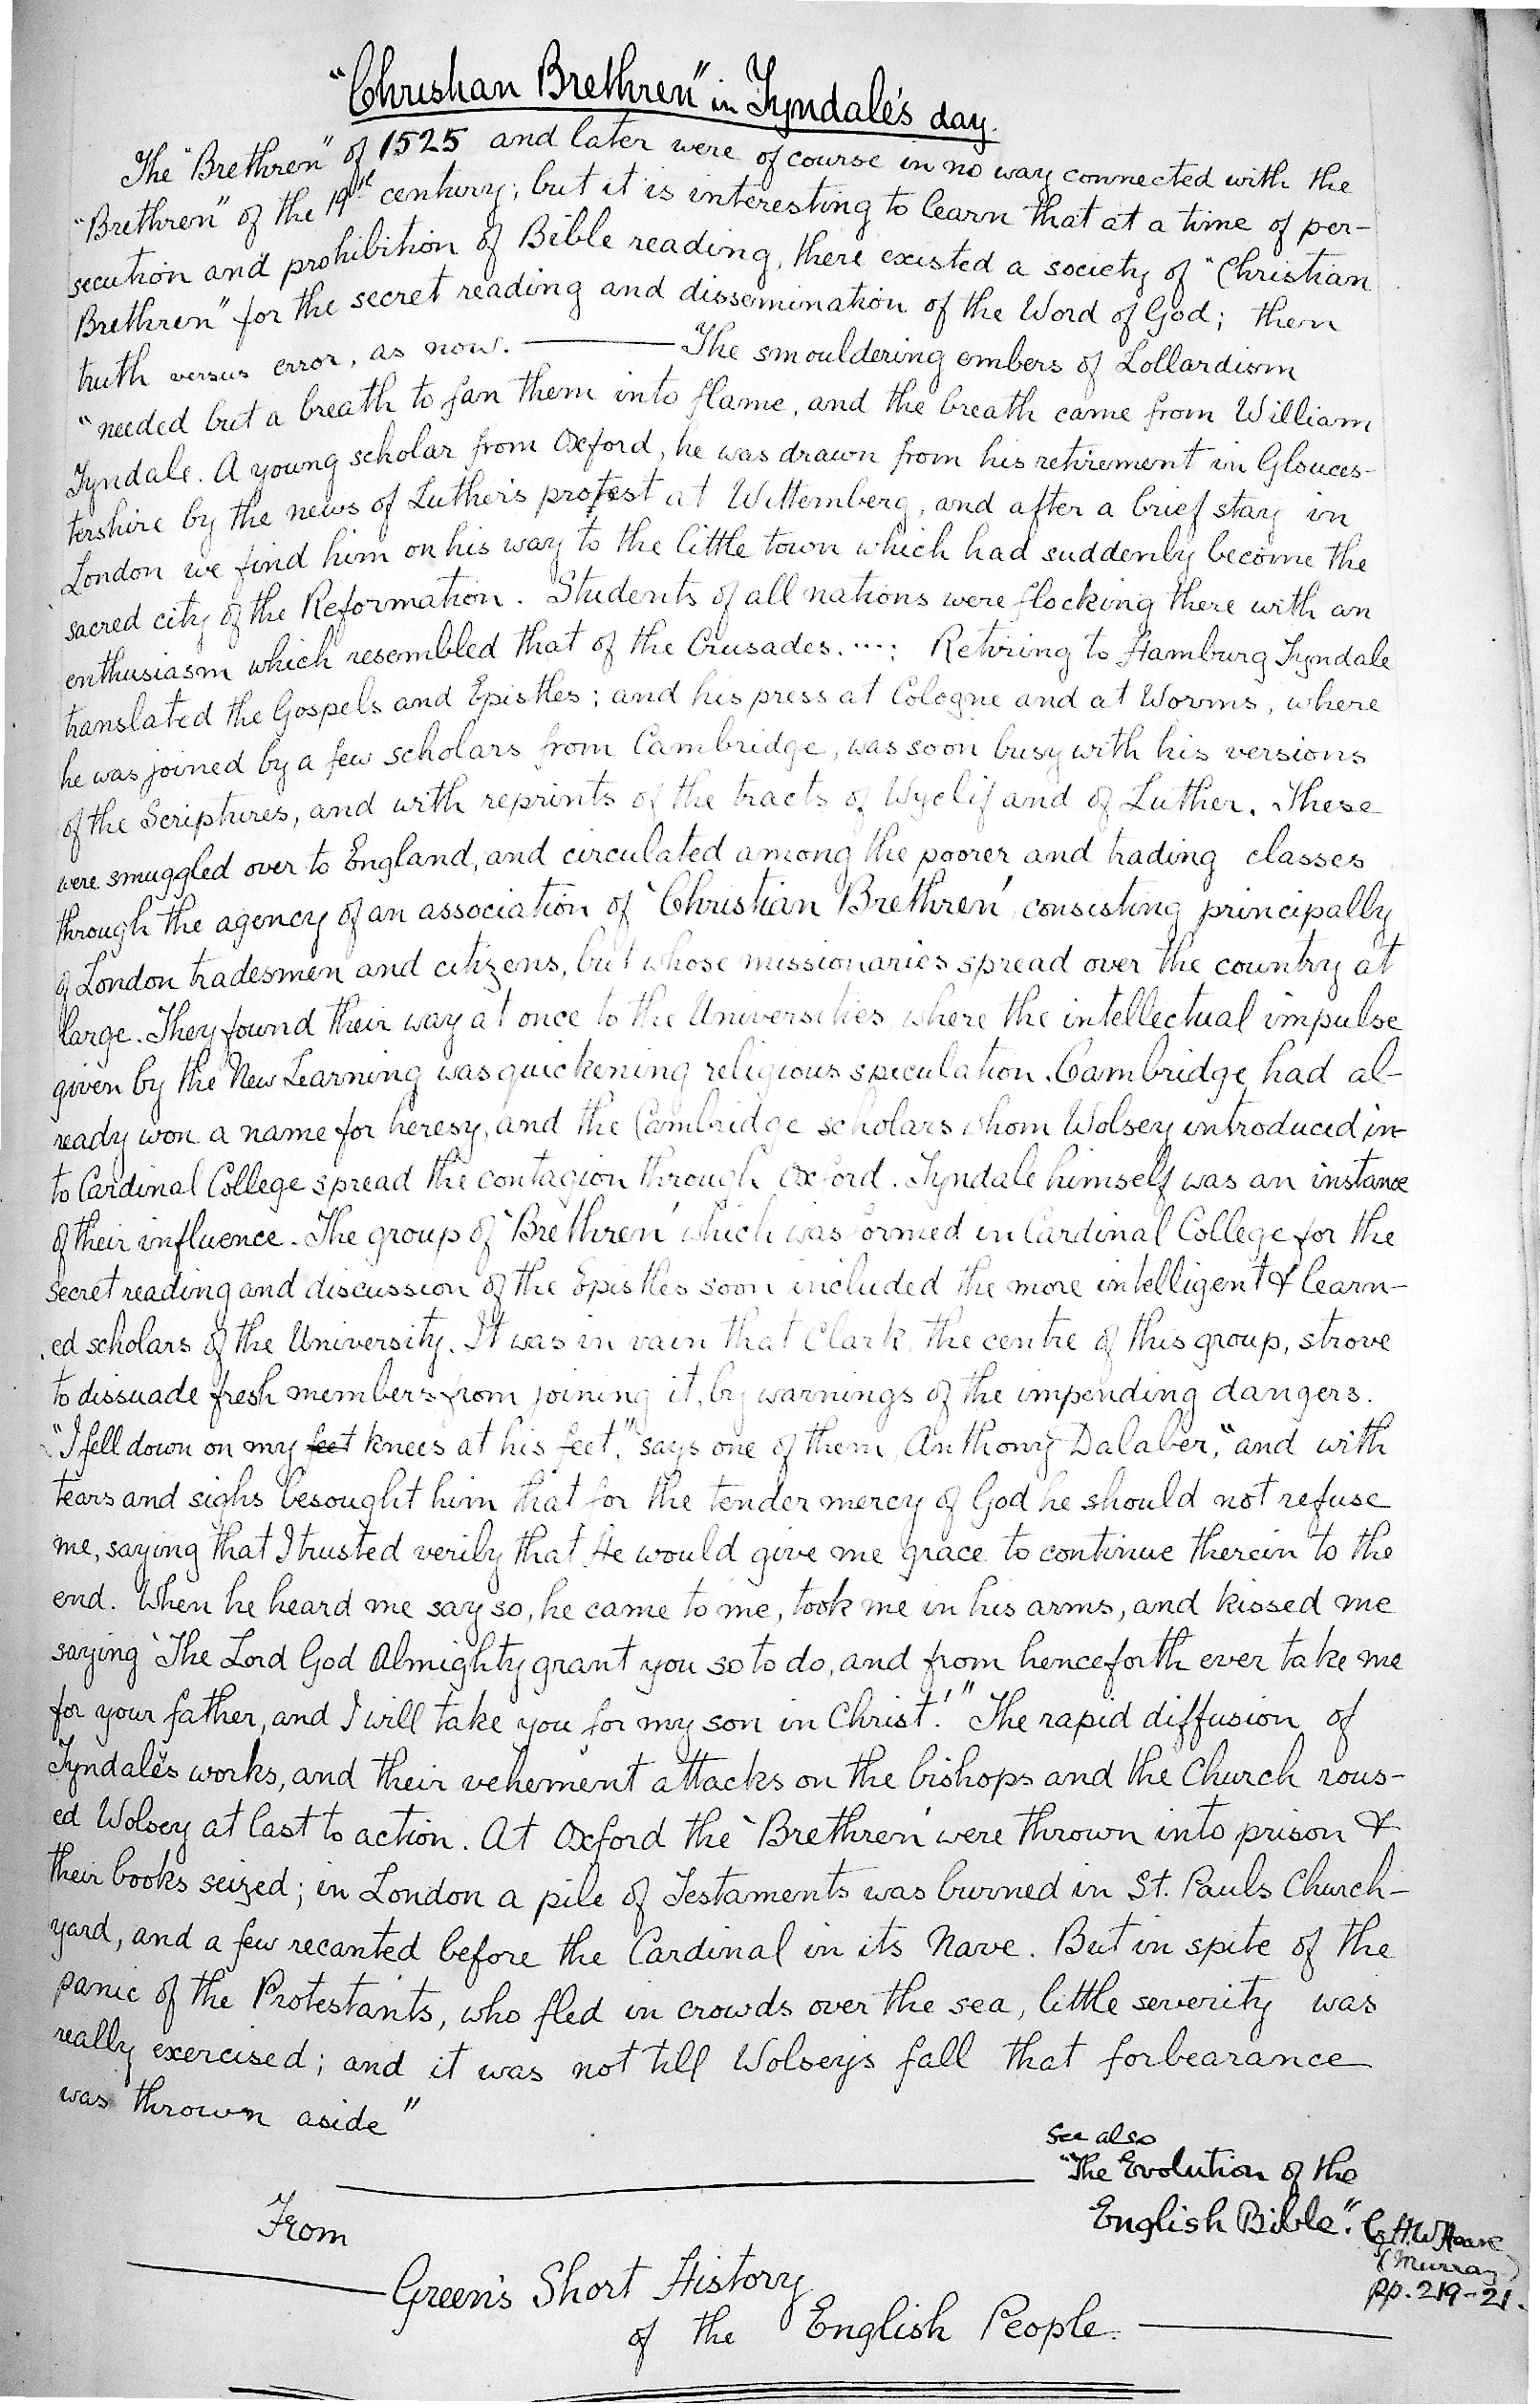 "Christian Brethren" in Tyndale's day.
The "Brethren" of 1525 and later were of course in no way connected with the
"Brethren" of the 19th century; but it is interesting to learn that at a time of per-
secution and prohibition of Bible reading, there existed a society of "Christian
Brethren" for the secret reading and dissemination of the Word of God; then
truth versus error, as now. ——— The smouldering embers of Lollardism
"needed but a breath to fan them into flame, and the breath came from William
Tyndale. A young scholar from Oxford, he was drawn from his retirement in Glouces-
tershire by the news of Luther's protest at Wittemberg, and after a brief stay in
London we find him on his way to the little town which had suddenly become the
sacred city of the Reformation. Students of all nations were flocking there with an
enthusiasm which resembled that of the Crusades. ....; Retiring to Hamburg Tyndale
translated the Gospels and Epistles; and his press at Cologne and at Worms, where
he was joined by a few scholars from Cambridge, was soon busy with his versions
of the Scriptures, and with reprints of the tracts of Wyclif and of Luther. These
were smuggled over to England, and circulated among the poorer and trading classes
through the agency of an association of 'Christian Brethren', consisting principally
of London tradesmen and citizens, but whose missionaries spread over the country at
large. They found their way at once to the Universities where the intellectual impulse
given by the New Learning was quickening religious speculation. Cambridge had al-
ready won a name for heresy, and the Cambridge scholars whom Wolsey introduced in-
to Cardinal College spread the contagion through Oxford. Tyndale himself was an instance
of their influence. The group of 'Brethren' which was formed in Cardinal College for the
secret reading and discussion of the Epistles soon included the more intelligent & learn-
ed scholars of the University. It was in vain that Clark, the centre of this group, strove
to dissuade fresh members from joining it, by warnings of the impending dangers.
"I fell down on my feet knees at his feet," says one of them, Anthony Dalaber, "and with
tears and sighs besought him that for the tender mercy of God he should not refuse
me, saying that I trusted verily that He would give me grace to continue therein to the
end. When he heard me say so, he came to me, took me in his arms, and kissed me
saying 'The Lord God Almighty grant you so to do, and from henceforth ever take me
for your father, and I will take you for my son in Christ'." The rapid diffusion of
Tyndale's works, and their vehement attacks on the bishops and the Church rous-
ed Wolsey at last to action. At Oxford the 'Brethren' were thrown into prison &
their books seized; in London a pile of Testaments was burned in St. Pauls Church-
yard, and a few recanted before the Cardinal in its Nave. But in spite of the
panic of the Protestants, who fled in crowds over the sea, little severity was
really exercised; and it was not till Wolsey's fall that forbearance
was thrown aside"
See also
"The Evolution of the
English Bible". by H.W. Hoare
(Murray)
pp. 219-21.
From
Green's Short History
of the English People.